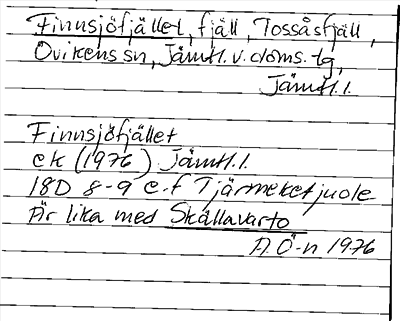 Finnsjöfjället, fjäll, Tossåsfjäll,
Ovikens sn, Jämtl. v. doms. tg,
Jämtl. l.
Finnsjöfjället
ek (1976) Jämtl. l.
18D 8-9 e-f Tjärmeketjuole
Är lika med Skállavarto
A. Ö-n 1976